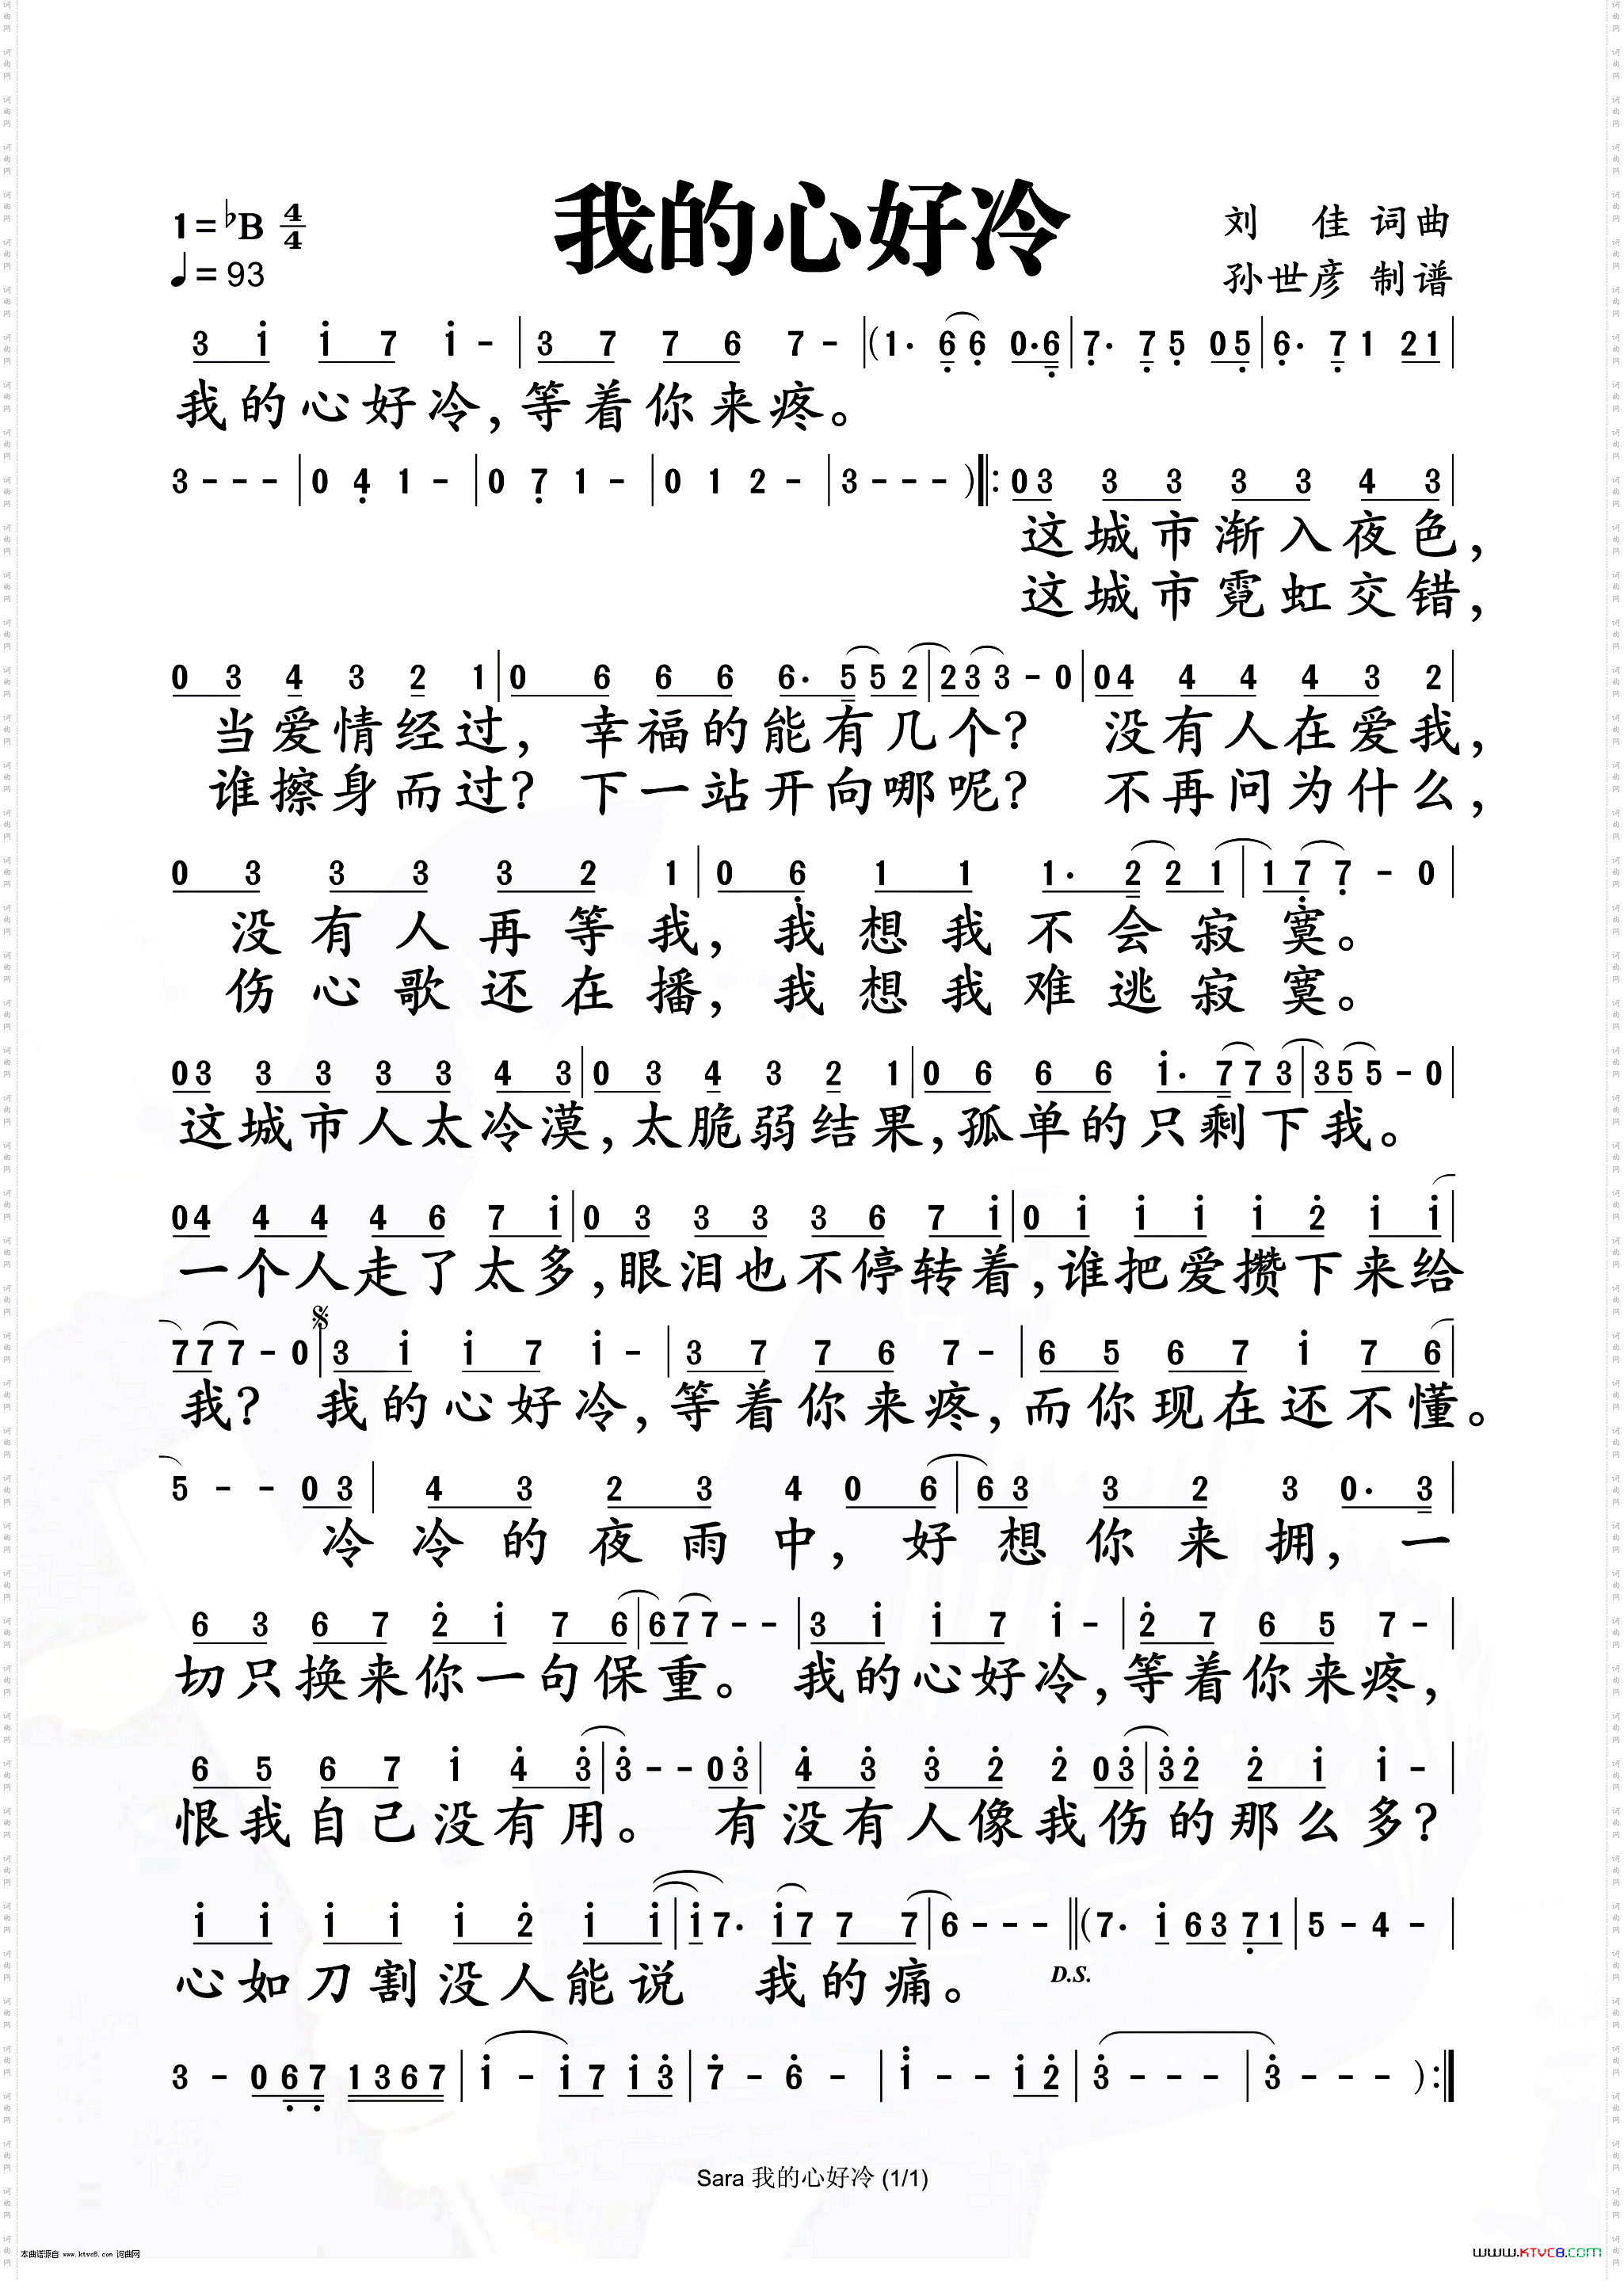 我的心好冷
1=♭B 4/4
♩=93
刘 佳 词曲
孙世彦 制谱
3 i i 7 i - | 3 7 7 6 7 - | (1· 6 6 0·6 | 7· 7 5 0 5 | 6· 7 1 2 1 |
我的心好冷,等着你来疼。
3 - - - | 0 4 1 - | 0 7 1 - | 0 1 2 - | 3 - - - ) ‖: 0 3 3 3 3 3 4 3 |
这城市渐入夜色,
这城市霓虹交错,
0 3 4 3 2 1 | 0 6 6 6 6· 5 5 2 | 2 3 3 - 0 | 0 4 4 4 4 3 2 |
当爱情经过, 幸福的能有几个? 没有人在爱我,
谁擦身而过? 下一站开向哪呢? 不再问为什么,
0 3 3 3 3 2 1 | 0 6 1 1 1· 2 2 1 | 1 7 7 - 0 |
没有人再等我, 我想我不会寂寞。
伤心歌还在播, 我想我难逃寂寞。
0 3 3 3 3 3 4 3 | 0 3 4 3 2 1 | 0 6 6 6 i· 7 7 3 | 3 5 5 - 0 |
这城市人太冷漠,太脆弱结果,孤单的只剩下我。
0 4 4 4 4 6 7 i | 0 3 3 3 3 6 7 i | 0 i i i i 2 i i |
一个人走了太多,眼泪也不停转着,谁把爱攒下来给
7 7 7 - 0 | 3 i i 7 i - | 3 7 7 6 7 - | 6 5 6 7 i 7 6 |
我? 我的心好冷,等着你来疼,而你现在还不懂。
5 - - 0 3 | 4 3 2 3 4 0 6 | 6 3 3 2 3 0· 3 |
冷冷的夜雨中, 好想你来拥, 一
6 3 6 7 2 i 7 6 | 6 7 7 - - | 3 i i 7 i - | 2 7 6 5 7 - |
切只换来你一句保重。 我的心好冷,等着你来疼,
6 5 6 7 i 4 3 | 3 - - 0 3 | 4 3 3 2 2 0 3 | 3 2 2 i i - |
恨我自己没有用。 有没有人像我伤的那么多?
i i i i i 2 i i | i 7· i 7 7 7 | 6 - - - ‖ (7· i 6 3 7 1 | 5 - 4 - |
心如刀割没人能说 我的痛。 D.S.
3 - 0 6 7 1 3 6 7 | i - i 7 i 3 | 7 - 6 - | i - - i 2 | 3 - - - | 3 - - - ) :‖
Sara 我的心好冷 (1/1)
本曲谱源自 www.ktvc8.com 词曲网
WWW.KTVC8.COM